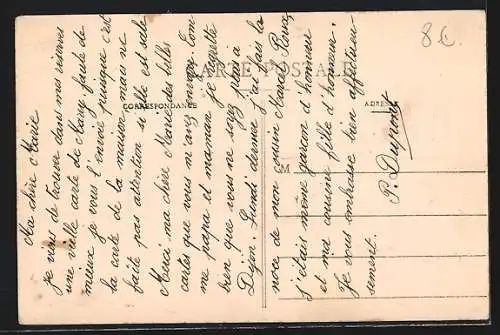 8€
CARTE POSTALE
CORRESPONDANCE
ADRESSE
CM
Ma chère Marie
Je viens de trouver dans mes réserves
une vieille carte de Mary faute de
mieux je vous l'envoie puisque c'est
la carte de la maison mais ne
faite pas attention si elle est sale
Merci ma chère Marie des belles
cartes que vous m'avez envoyé com
me papa et maman je regrette
bien que vous ne soyez pas à
Dijon. Lundi dernier j'ai fais la
noce de mon cousin Marc
j'étais même garcon d'honneur
et ma cousine fille d'honneur.
Je vous embrasse bien affectueu-
sement.
P. Dupont